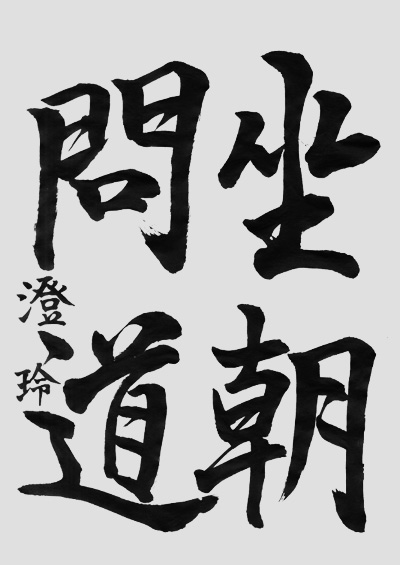 坐朝
問道
澄玲